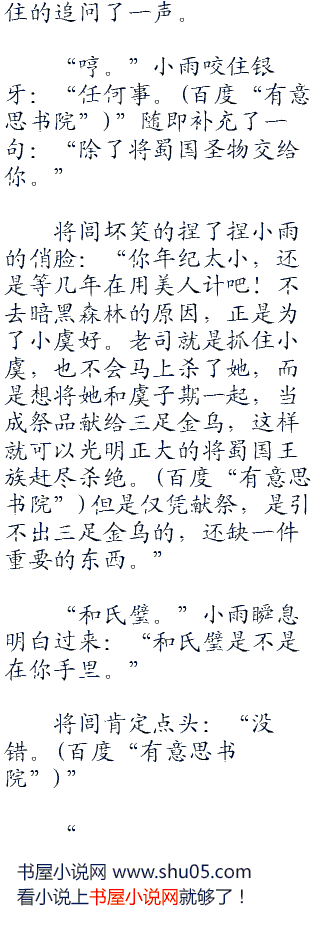 住的追问了一声。
“哼。”小雨咬住银
牙：“任何事。(百度“有意
思书院”)”随即补充了一
句：“除了将蜀国圣物交给
你。”
将闾坏笑的捏了捏小雨
的俏脸：“你年纪太小，还
是等几年在用美人计吧！不
去暗黑森林的原因，正是为
了小虞好。老司就是抓住小
虞，也不会马上杀了她，而
是想将她和虞子期一起，当
成祭品献给三足金乌，这样
就可以光明正大的将蜀国王
族赶尽杀绝。(百度“有意思
书院”)但是仅凭献祭，是引
不出三足金乌的，还缺一件
重要的东西。”
“和氏璧。”小雨瞬息
明白过来：“和氏璧是不是
在你手里。”
将闾肯定点头：“没
错。(百度“有意思书
院”)”
“
书屋小说网 www.shu05.com
看小说上书屋小说网就够了！